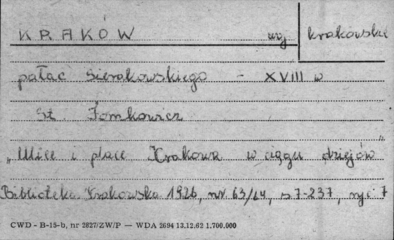 KRAKÓW woj krakowskie
pałac Sierakowskiego - XVIII w
St. Tomkowicz
„Ulice i place Krakowa w ciągu dziejów”
Biblioteka Krakowska 1926, nr. 63/64, s 7-237, ryc 7
CWD - B-15-b, nr 2827/ZW/P — WDA 2694 13.12.62 1.700.000